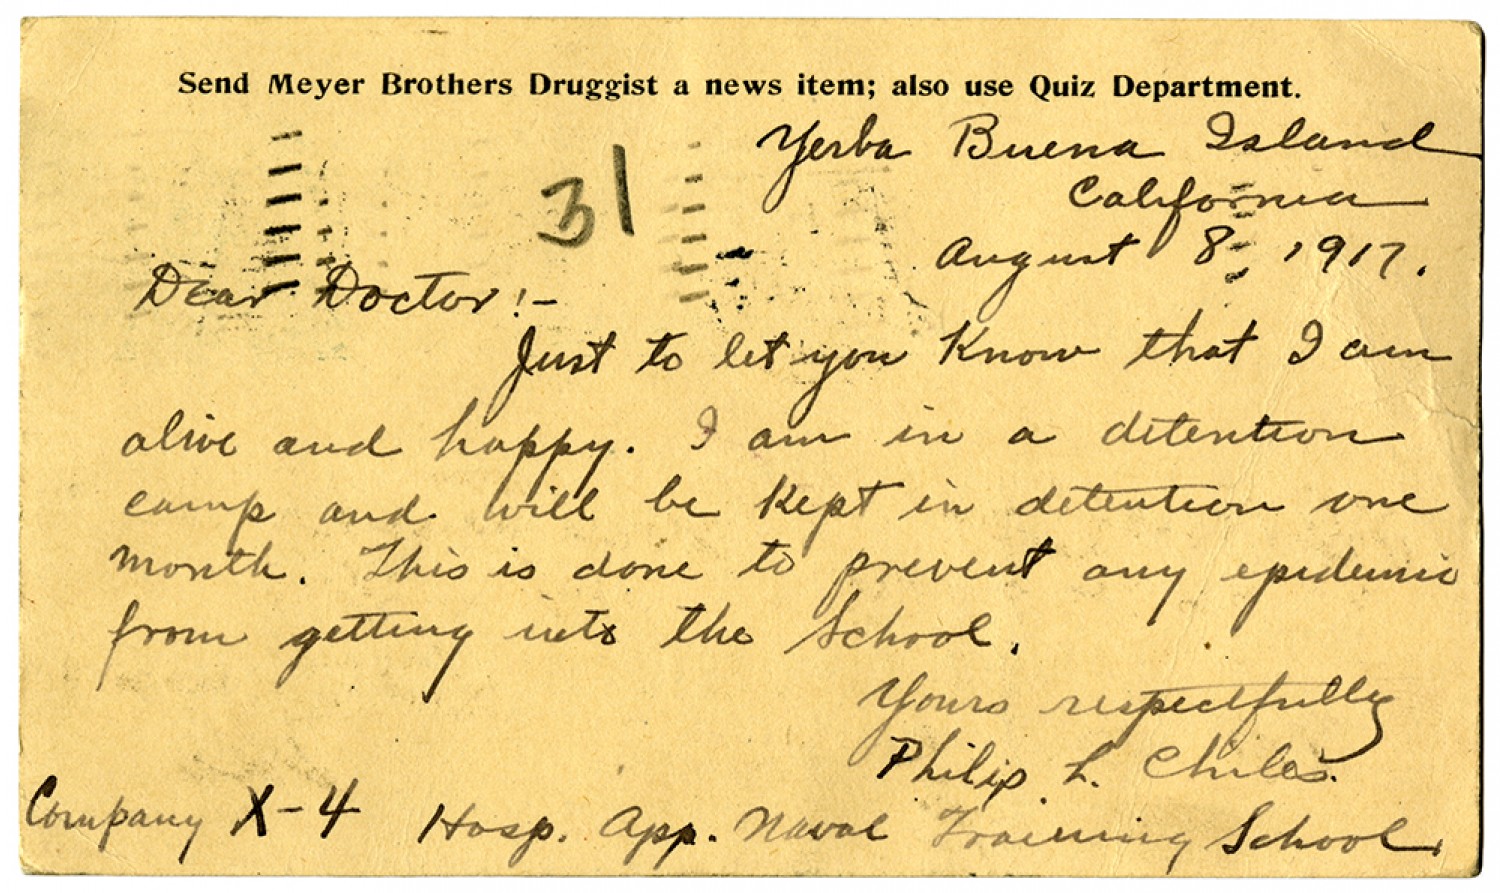 Send Meyer Brothers Druggist a news item; also use Quiz Department.
Yerba Buena Island
California
31
August 8, 1917.
Dear Doctor!-
Just to let you know that I am
alive and happy. I am in a detention
camp and will be kept in detention one
month. This is done to prevent any epidemic
from getting into the School.
Yours respectfully
Philip L. Chiles.
Company X-4 Hosp. App. Naval Training School.